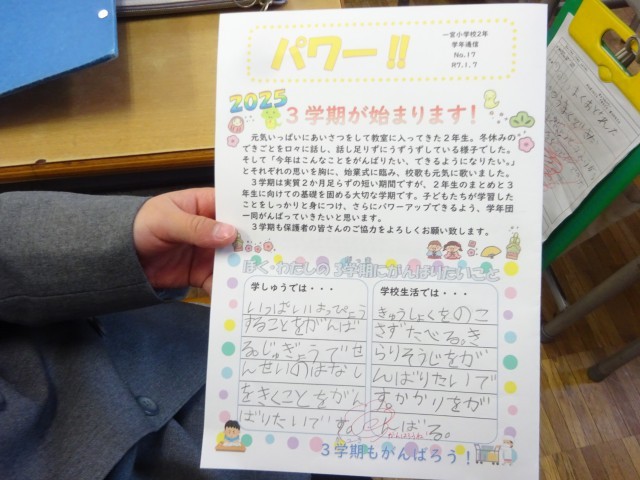 パワー!!
一宮小学校2年
学年通信
No.17
R7.1.7
2025
3学期が始まります!
元気いっぱいにあいさつをして教室に入ってきた2年生。冬休みの
できごとを口々に話し、話し足りずにうずうずしている様子でした。
そして「今年はこんなことをがんばりたい、できるようになりたい。」
とそれぞれの思いを胸に、始業式に臨み、校歌も元気に歌いました。
3学期は実質2か月足らずの短い期間ですが、2年生のまとめと3
年生に向けての基礎を固める大切な学期です。子どもたちが学習した
ことをしっかりと身につけ、さらにパワーアップできるよう、学年団
一同がんばっていきたいと思います。
3学期も保護者の皆さんのご協力をよろしくお願い致します。
ぼく・わたしの3学期にがんばりたいこと
学しゅうでは・・・
いっぱいはっぴょう
することをがんば
る。じゅぎょうでせ
んせいのはなし
をきくことをがん
ばりたいです。
学校生活では・・・
きゅうしょくをのこ
さずたべる。き
らりそうじをが
んばりたいで
す。かかりをが
んばる。
3学期もがんばろう!